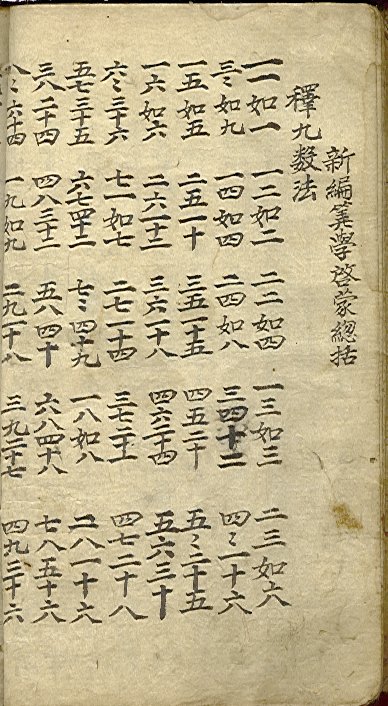 新編筭學啓蒙總括
釋九数法
一一如一 一二如二 二二如四 一三如三 二三如六
三〻如九 一四如四 二四如八 三四十二 四〻一十六
一五如五 二五一十 三五一十五 四五二十 五〻二十五
一六如六 二六一十二 三六一十八 四六二十四 五六三十
六〻三十六 七一如七 二七一十四 三七二十一 四七二十八
五七三十五 六七四十二 七〻四十九 一八如八 二八一十六
三八二十四 四八三十二 五八四十 六八四十八 七八五十六
八〻六十四 一九如九 二九一十八 三九二十七 四九三十六